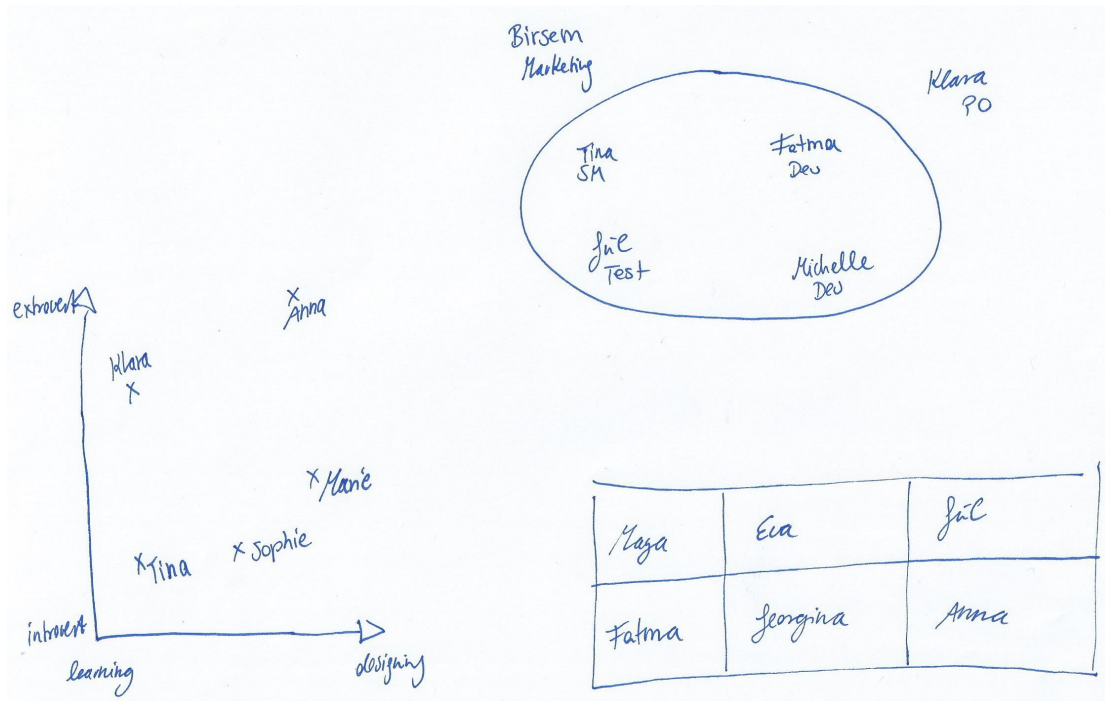 Birsem
Marketing
Klara
PO
Tina
SM
Fatma
Dev
Gül
Test
Michelle
Dev
extrovert
Anna
Klara
Marie
Sophie
Tina
introvert
learning
designing
Maya
Eva
Gül
Fatma
Georgina
Anna